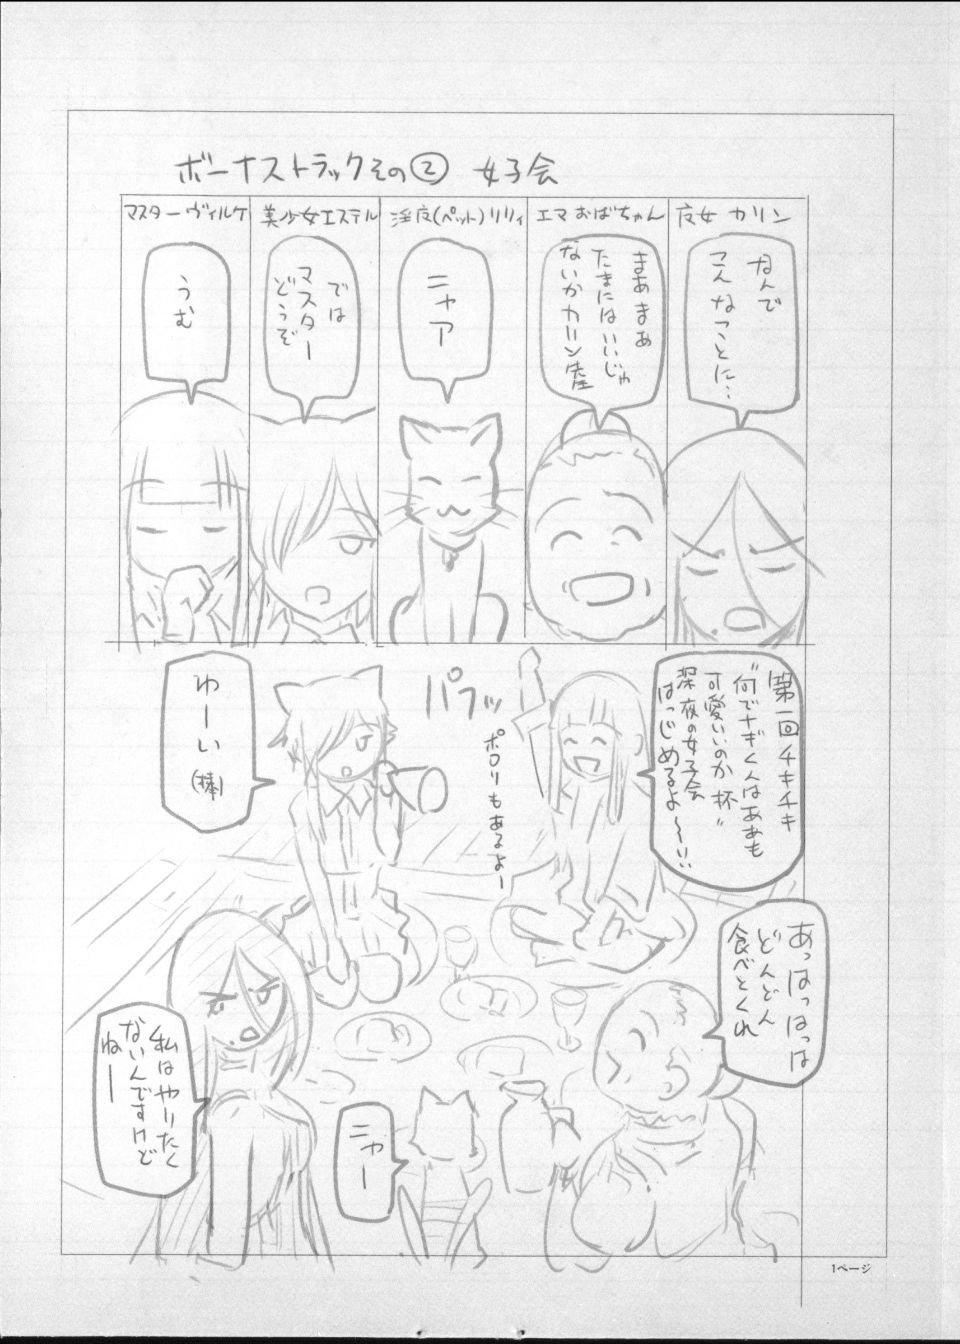 ボーナストラックその② 女子会
皮女 カリン
なんで
こんなことに…
エマおばちゃん
まあまあ
たまにはいいじゃ
ないかカリン先生
淫皮(ペット)リリィ
ニャア
美少女エステル
では
マスター
どうぞ
マスターヴィルケ
うむ
第一回チキチキ
"何でナギくんはああも
可愛いいのか杯"
深夜の女子会
はっじめるよ〜!!
パフッ
ポロリもあるよー
わーい
(棒)
あっはっはっは
どんどん
食べとくれ
ニャー
私はやりたく
ないんですけど
ねー
1ページ